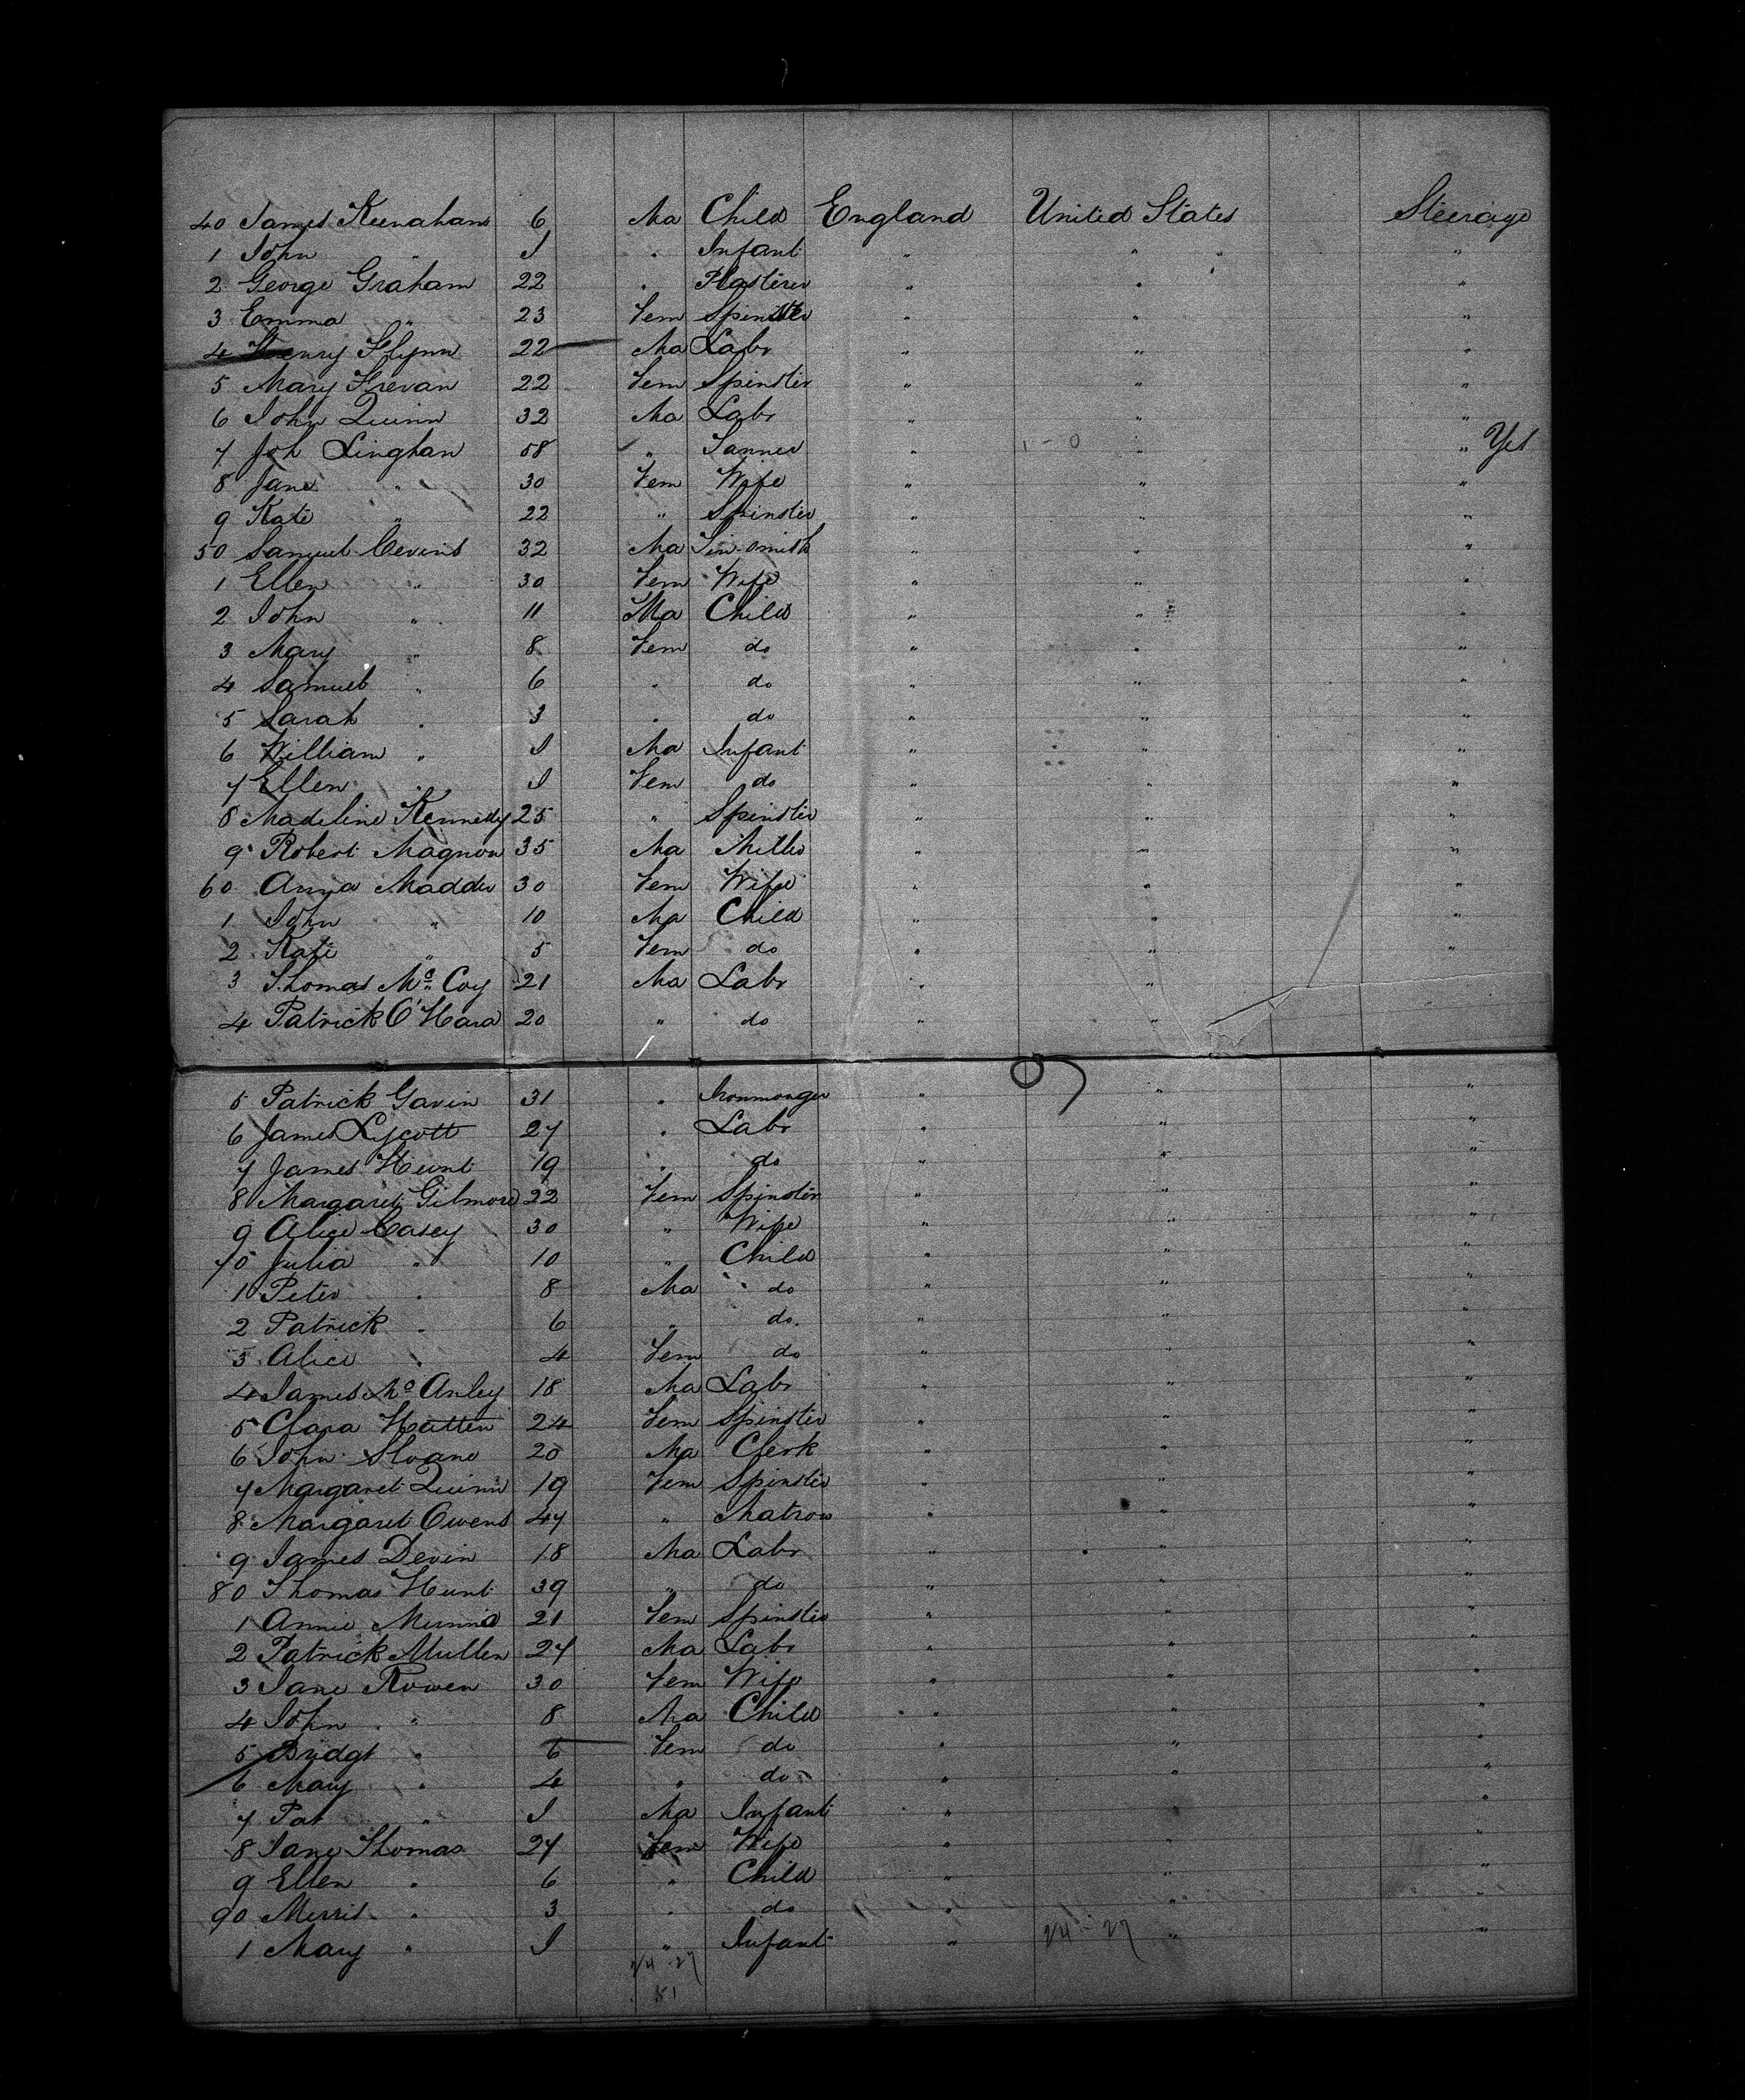 40 James Keenahans 6 Ma Child England United States Steerage
1 John " I " Infant " " "
2 George Graham 22 " Plasterer " " "
3 Emma " 23 Fem Spinster " " "
4 Henry Flynn 22 Ma Labr " " "
5 Mary Frevan 22 Fem Spinster " " "
6 John Quinn 32 Ma Labr " " "
7 Joh Linghan 58 " Tanner " " "
8 Jane " 30 Fem Wife " " "
9 Kate " 22 " Spinster " " "
50 Samuel Cevins 32 Ma Tin-smith " " "
1 Ellen " 30 Fem Wife " " "
2 John " 11 Ma Child " " "
3 Mary " 8 Fem do " " "
4 Samuel " 6 " do " " "
5 Sarah " 3 " do " " "
6 William " I Ma Infant " " "
7 Ellen " I Fem do " " "
8 Madeline Kennedy 25 " Spinster " " "
9 Robert Magnon 35 Ma Miller " " "
60 Anna Madder 30 Fem Wife " " "
1 John " 10 Ma Child " " "
2 Kate " 5 Fem do " " "
3 Thomas Mc Coy 21 Ma Labr " "
4 Patrick O'Hara 20 " do " "
5 Patrick Gavin 31 " Ironmonger " " "
6 James Lycott 27 " Labr " " "
7 James Hunt 19 " do " " "
8 Margaret Gilmore 22 Fem Spinster " " "
9 Alice Casey 30 " Wife " " "
70 Julia " 10 " Child " " "
1 Peter " 8 Ma do " " "
2 Patrick " 6 " do. " " "
3 Alice " 4 Fem do " " "
4 James Mc Anley 18 Ma Labr " " "
5 Clara Hatten 24 Fem Spinster " " "
6 John Sloane 20 Ma Clerk " " "
7 Margaret Quinn 19 Fem Spinster " " "
8 Margaret Owens 47 " Matron " " "
9 James Devin 18 Ma Labr " " "
80 Thomas Hunt 39 " do " " "
1 Annie 21 Fem Spinster " " "
2 Patrick Mullen 27 Ma Labr " " "
3 Jane Rowen 30 Fem Wife " " "
4 John " 8 Ma Child " " "
5 Bridgt " 6 Fem do " " "
6 Mary " 4 " do " " "
7 Pat " I Ma Infant " " "
8 Jane Thomas 27 Fem Wife " " "
9 Ellen " 6 " Child " " "
90 " 3 " do " " "
1 Mary " I " Infant " " "